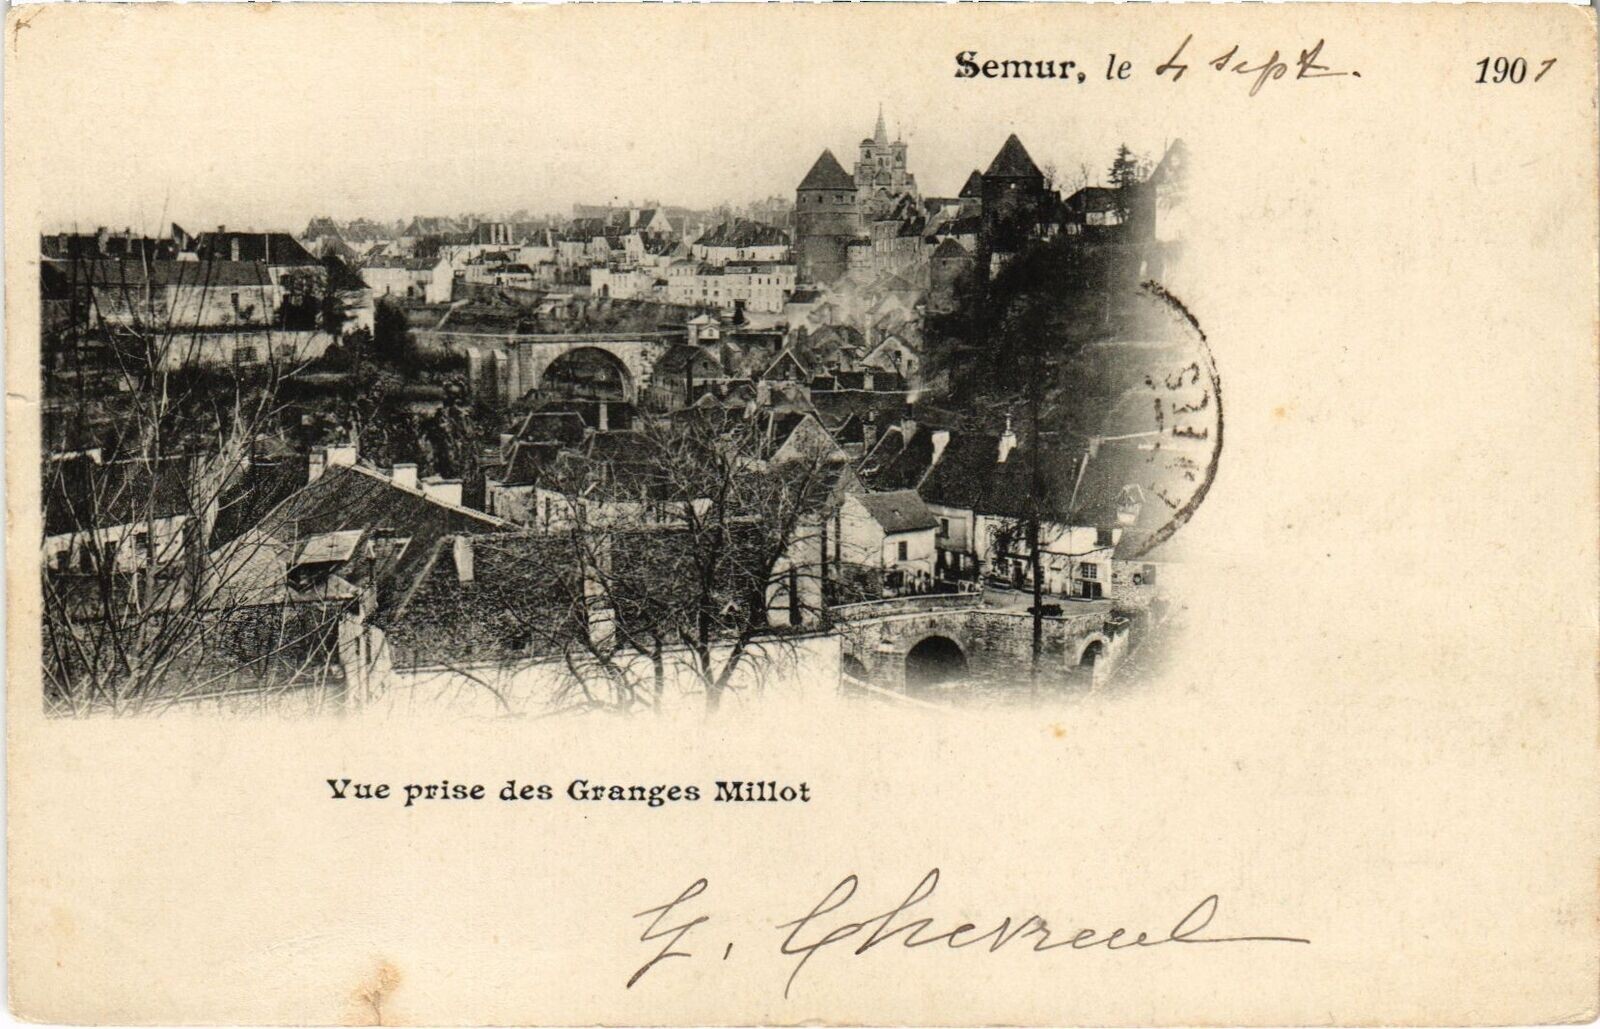 Semur, le 4 sept. 1901
Vue prise des Granges Millot
G. Chevreul